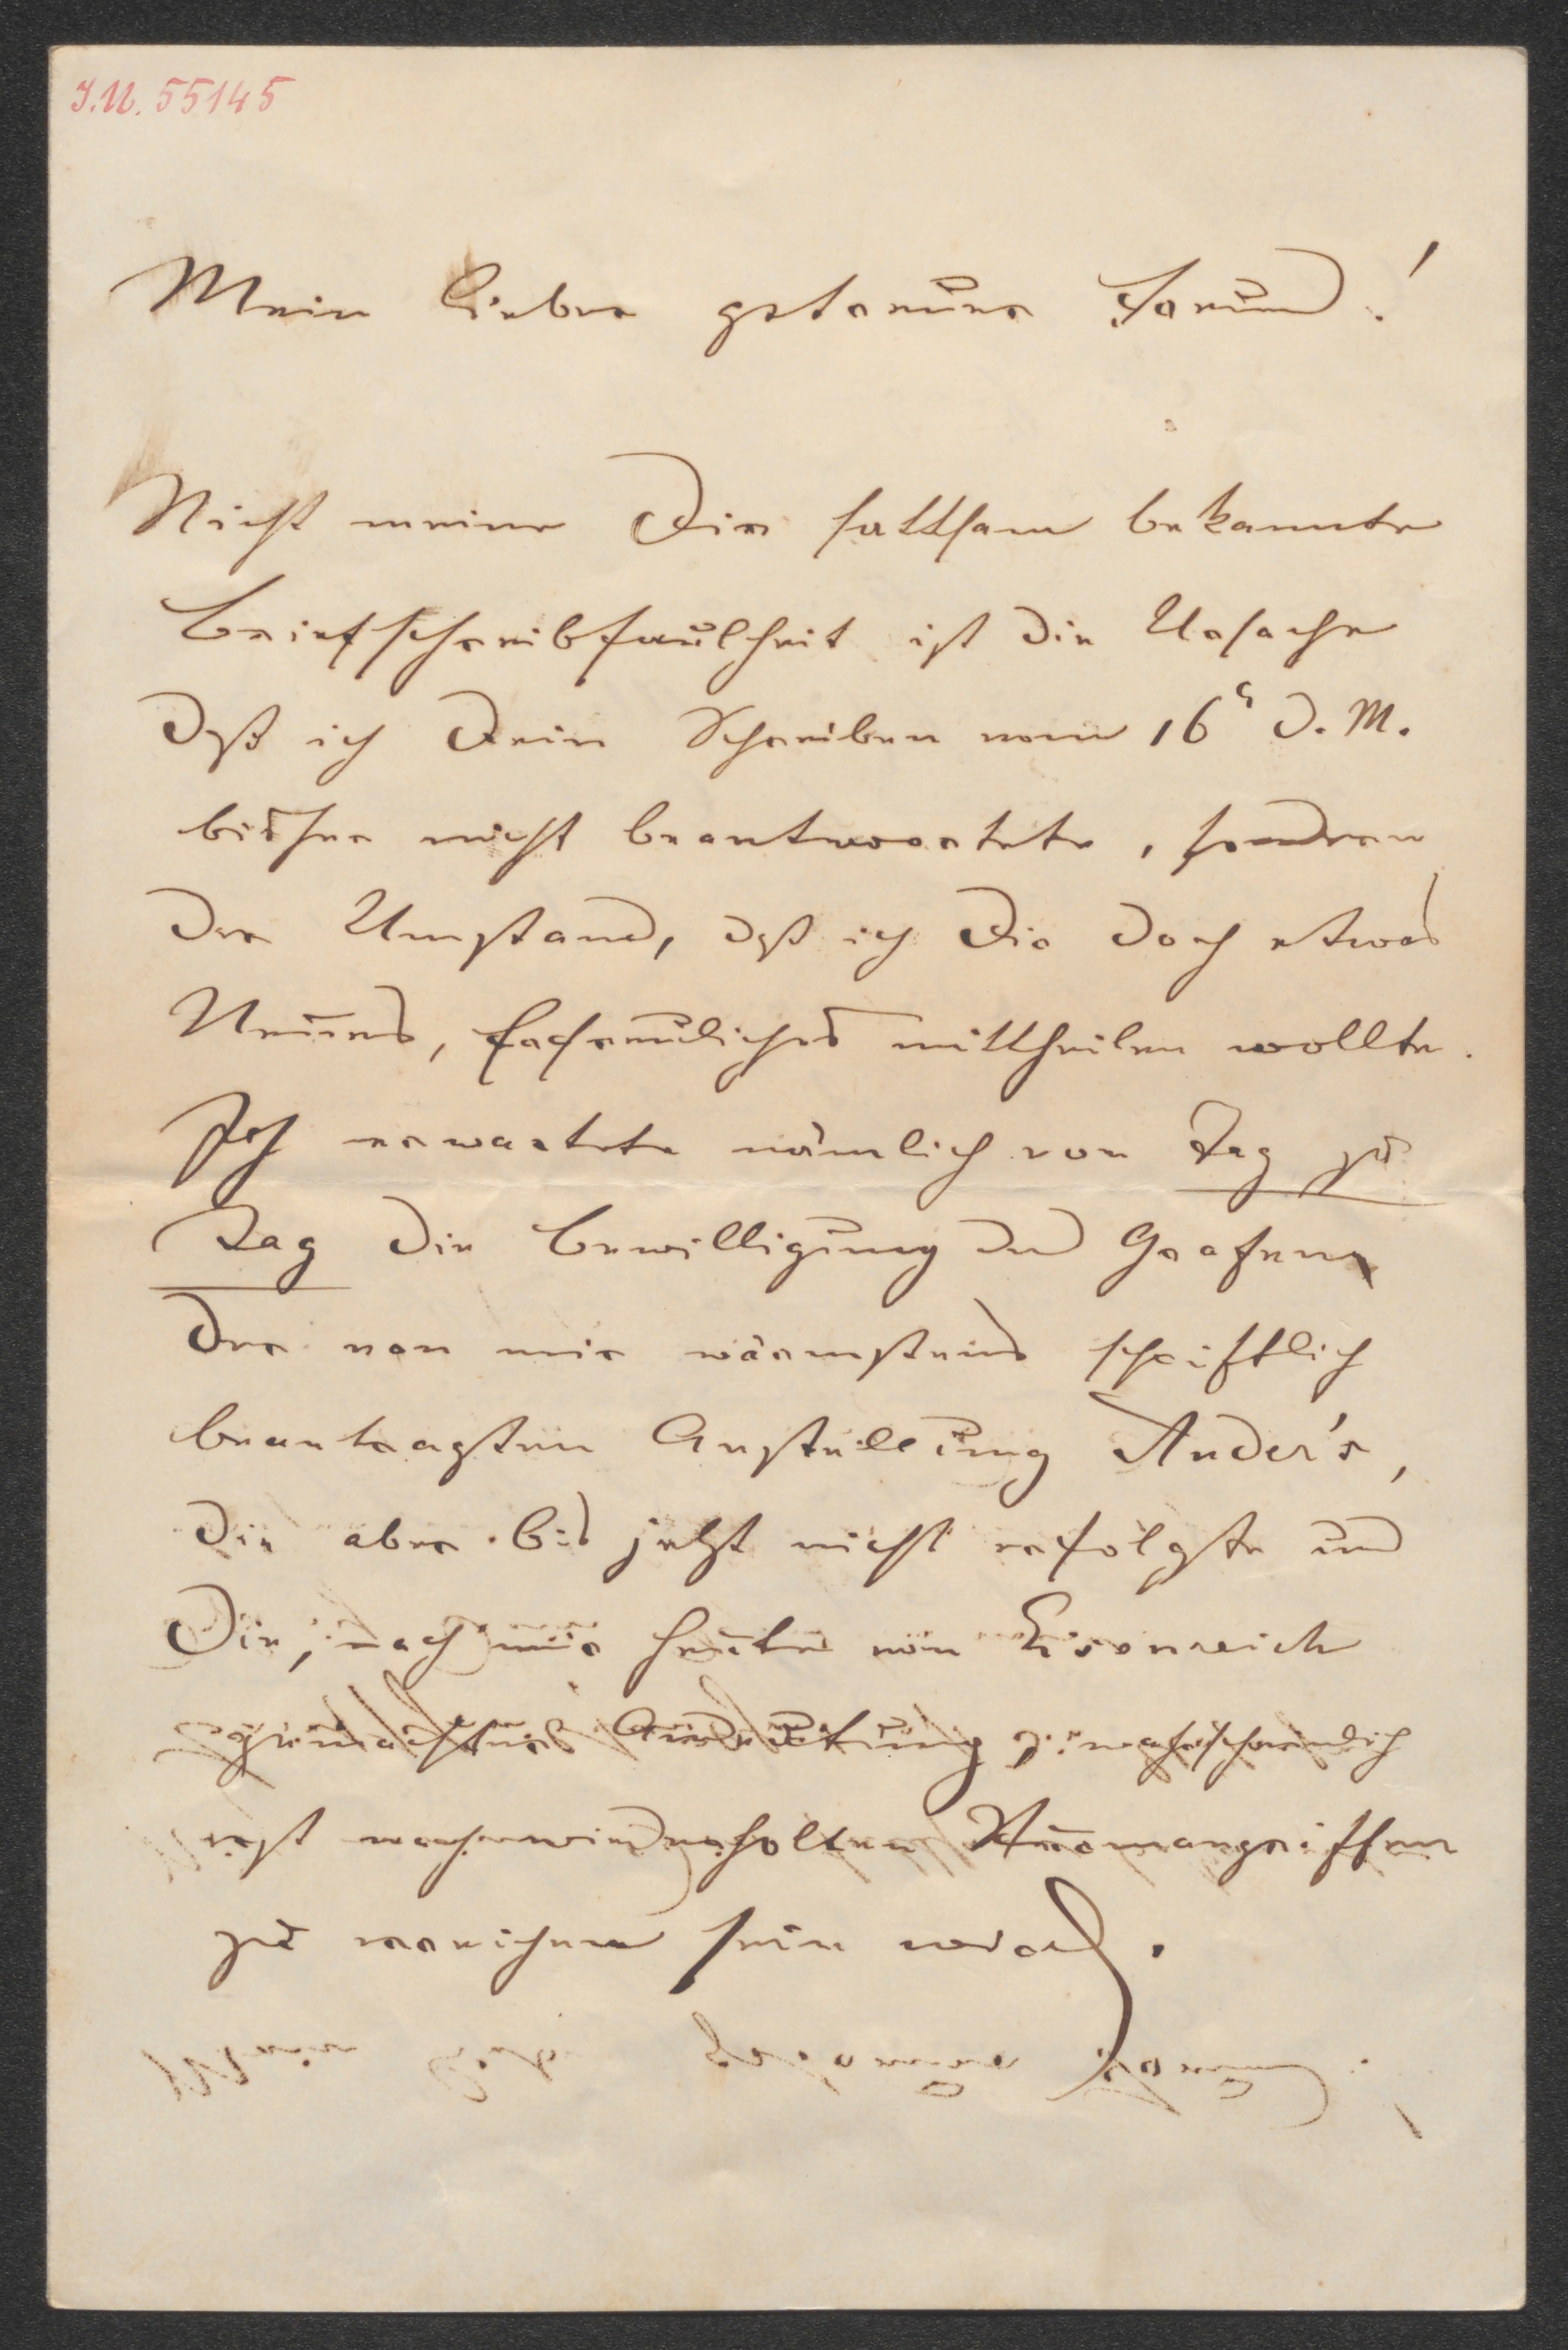 I.N. 55145
Mein lieber getreuer Freund!
Nicht meine Dir sattsam bekannte
Briefschreibfaulheit ist die Ursache
daß ich Dein Schreiben vom 16t d. M.
bisher nicht beantwortete, sondern
der Umstand, daß ich Dir doch etwas
Neues, Erfreuliches mittheilen wollte.
Ich erwartete nämlich von Tag zu
Tag die Bewilligung des Grafen
der von mir wärmstens schriftlich
beantragten Anstellung Ander's,
die aber bis jetzt nicht erfolgte und
die, nach mir heute von Eisenreich
gemachter Andeutung, wahrscheinlich
erst nach wiederholten Sturmangriffen
zu erreichen sein wird.